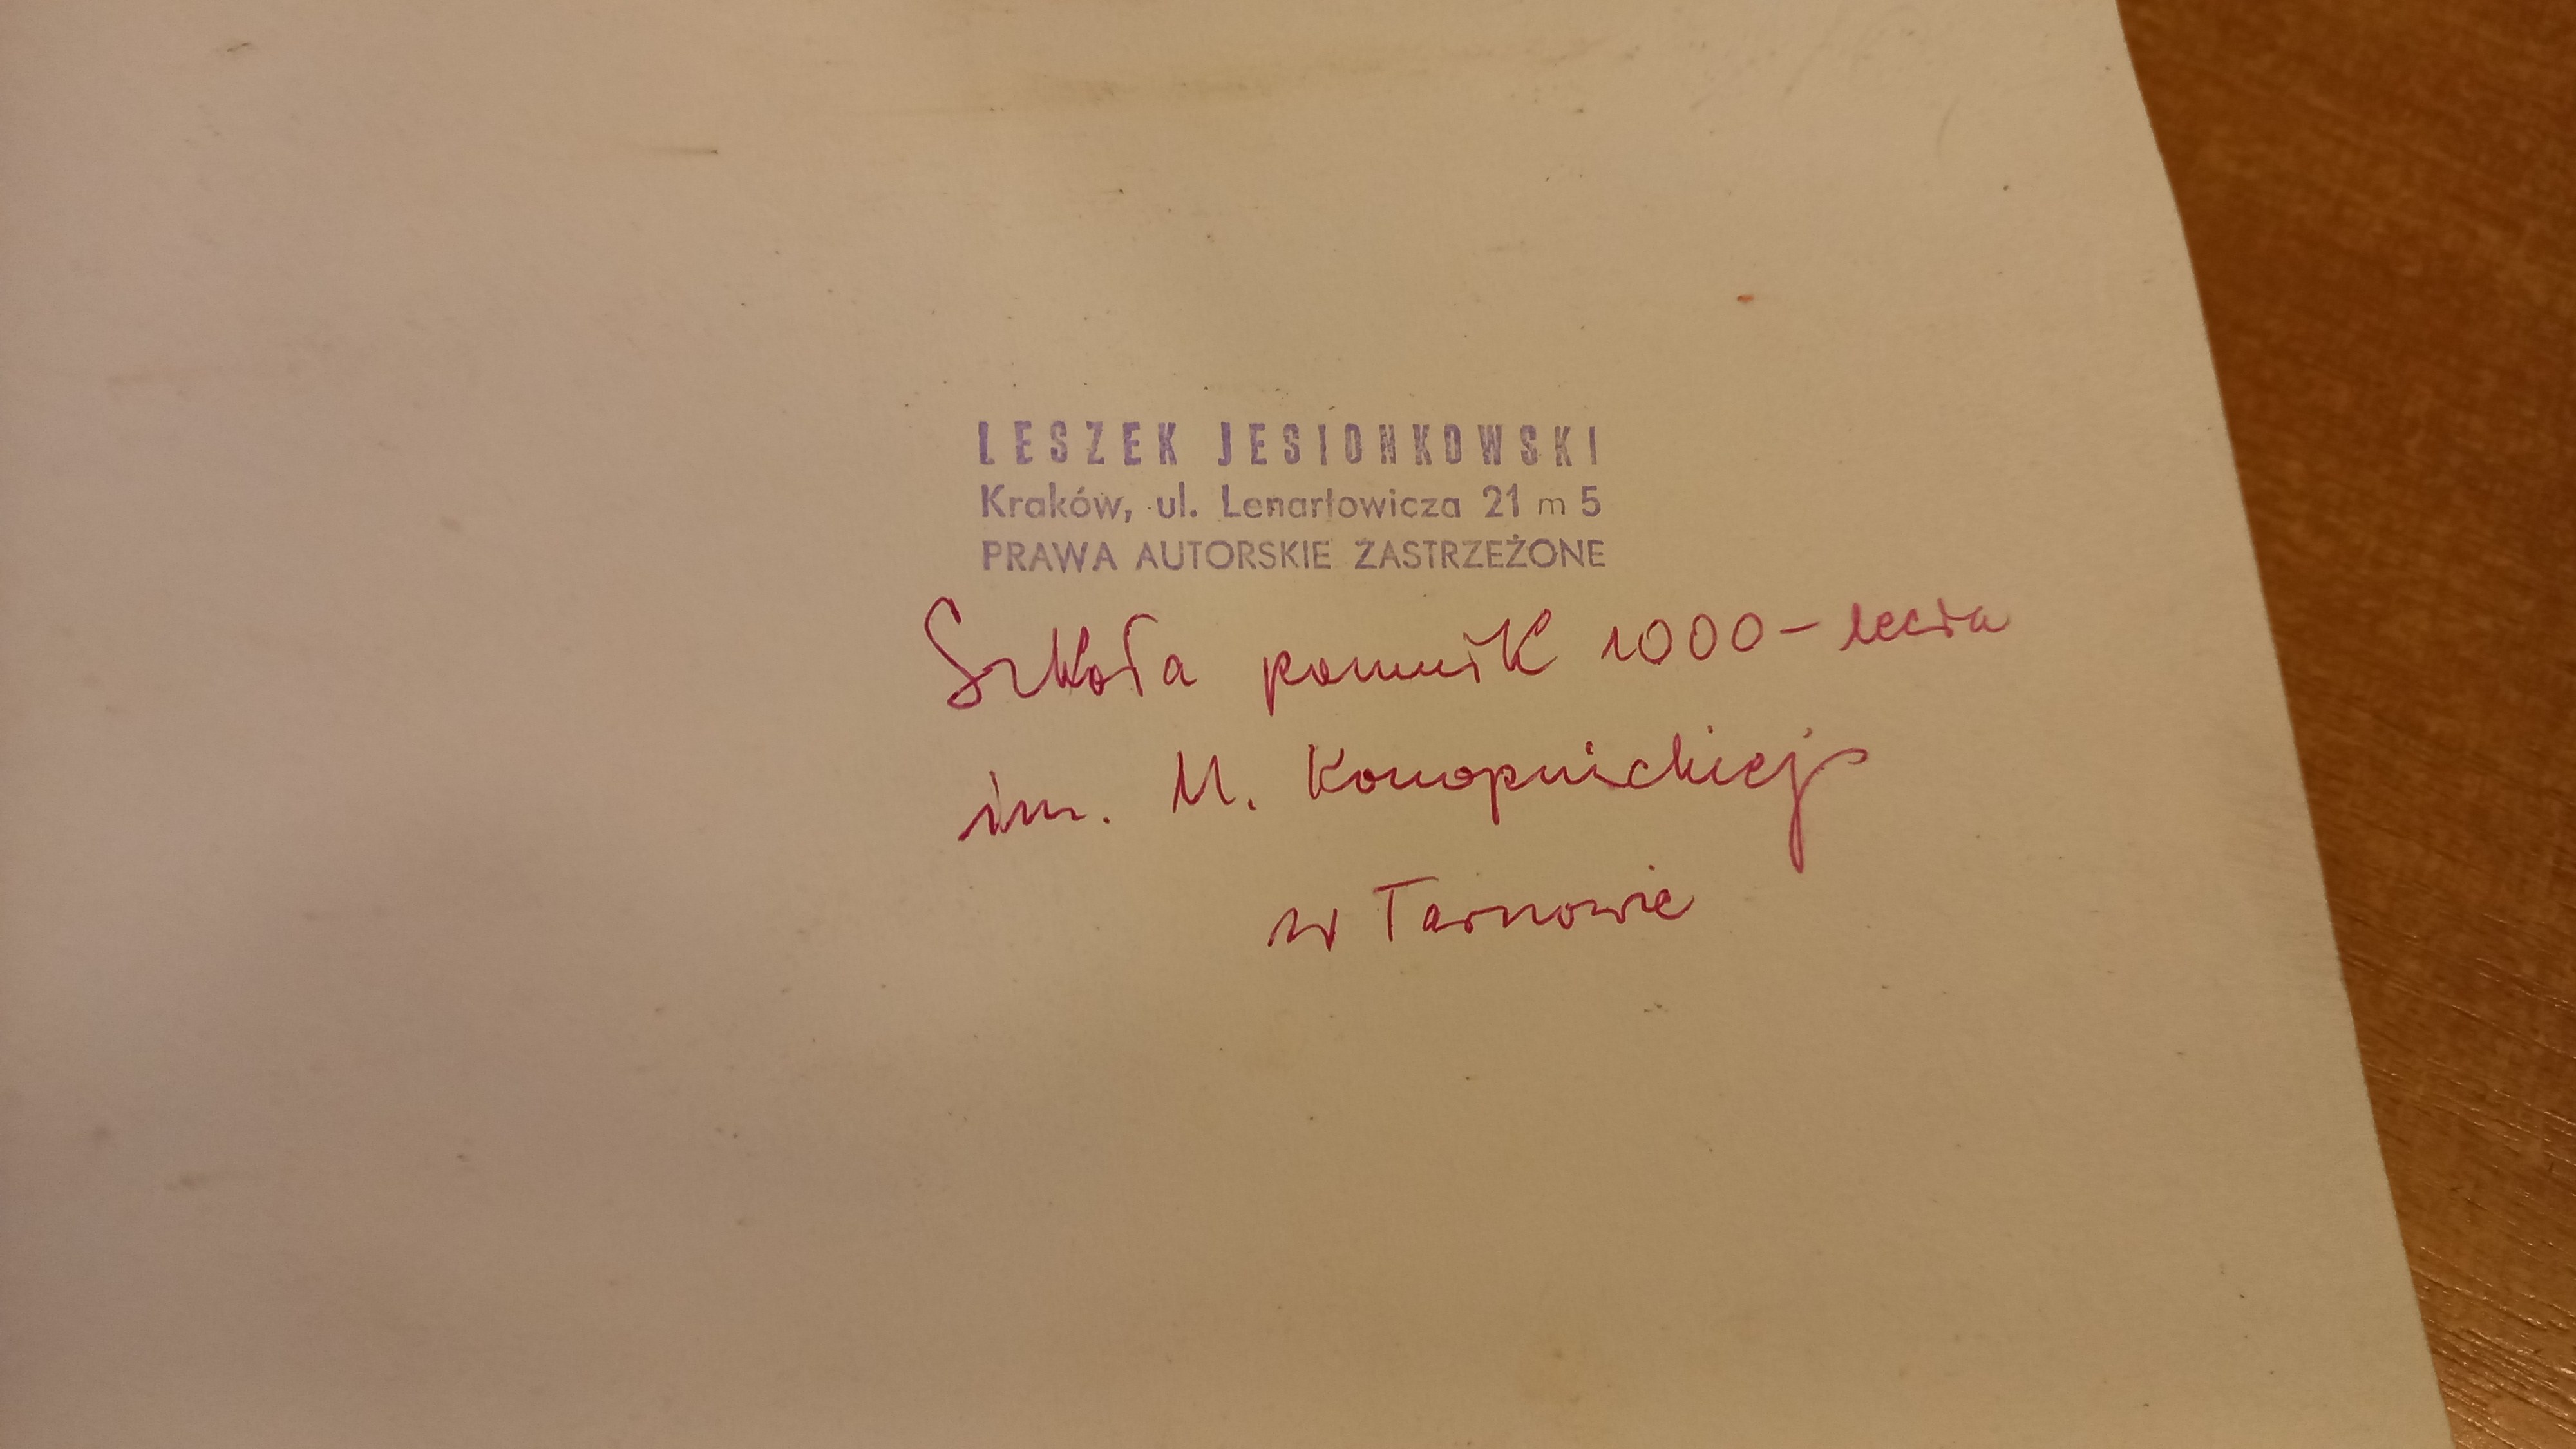 LESZEK JESIONKOWSKI
Kraków, ul. Lenartowicza 21 m 5
PRAWA AUTORSKIE ZASTRZEŻONE
Szkoła pomnik 1000-lecia
im. M. Konopnickiej
w Tarnowie